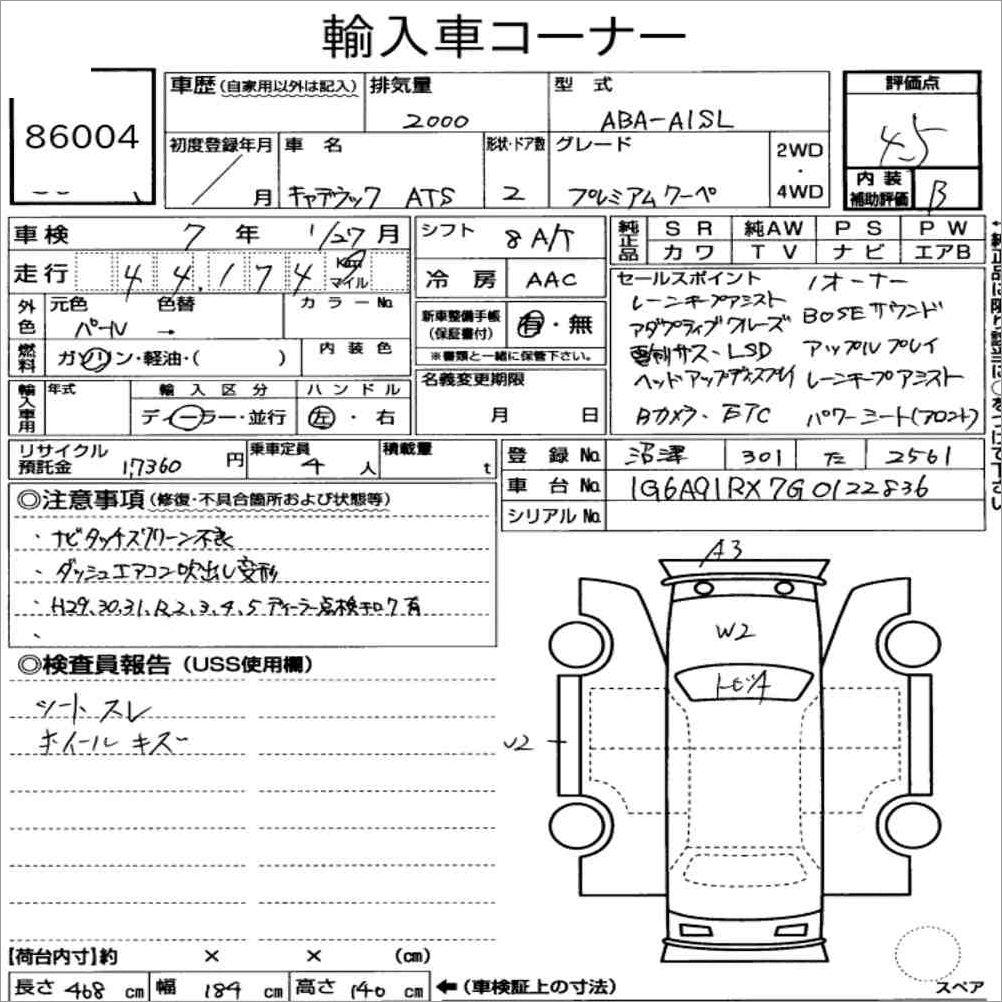 輸入車コーナー
86004
車歴(自家用以外は記入) 排気量 2000 型式 ABA-A1SL
評価点 4.5
初度登録年月 / 月 車名 キャデラック ATS 形状・ドア数 2 グレード プレミアムクーペ 2WD・4WD
内装補助評価 B
車検 7年 1/27月
シフト 8A/T
純正品 SR 純AW PS PW
カワ TV ナビ エアB
走行 44,174 Km マイル
冷房 AAC
外色 元色 パール 色替 → カラーNo.
新車整備手帳(保証書付) 有・無
※書類と一緒に保管下さい。
燃料 ガソリン・軽油・( ) 内装色
セールスポイント 1オーナー
レーンキープアシスト BOSEサウンド
アダプティブクルーズ アップルプレイ
電制サス・LSD レーンキープアシスト
ヘッドアップディスプレイ パワーシート(フロント)
Bカメラ・ETC
輸入車用 年式 輸入区分 ディーラー・並行 ハンドル 左・右
名義変更期限 月 日
リサイクル預託金 17360円 乗車定員 4人 積載量 t
登録No. 沼津 301 た 2561
車台No. 1G6A91RX7G0122836
シリアルNo.
◎注意事項(修復・不具合箇所および状態等)
・ナビタッチスクリーン不良
・ダッシュエアコン吹出し変形
・H29.30.31.R2.3.4.5ディーラー点検キロク有
・
◎検査員報告(USS使用欄)
シートスレ
ホイールキズ
A3
W2
トビツA
U2
【荷台内寸】約 × × (cm)
長さ 468 cm 幅 184 cm 高さ 140 cm ←(車検証上の寸法)
スペア